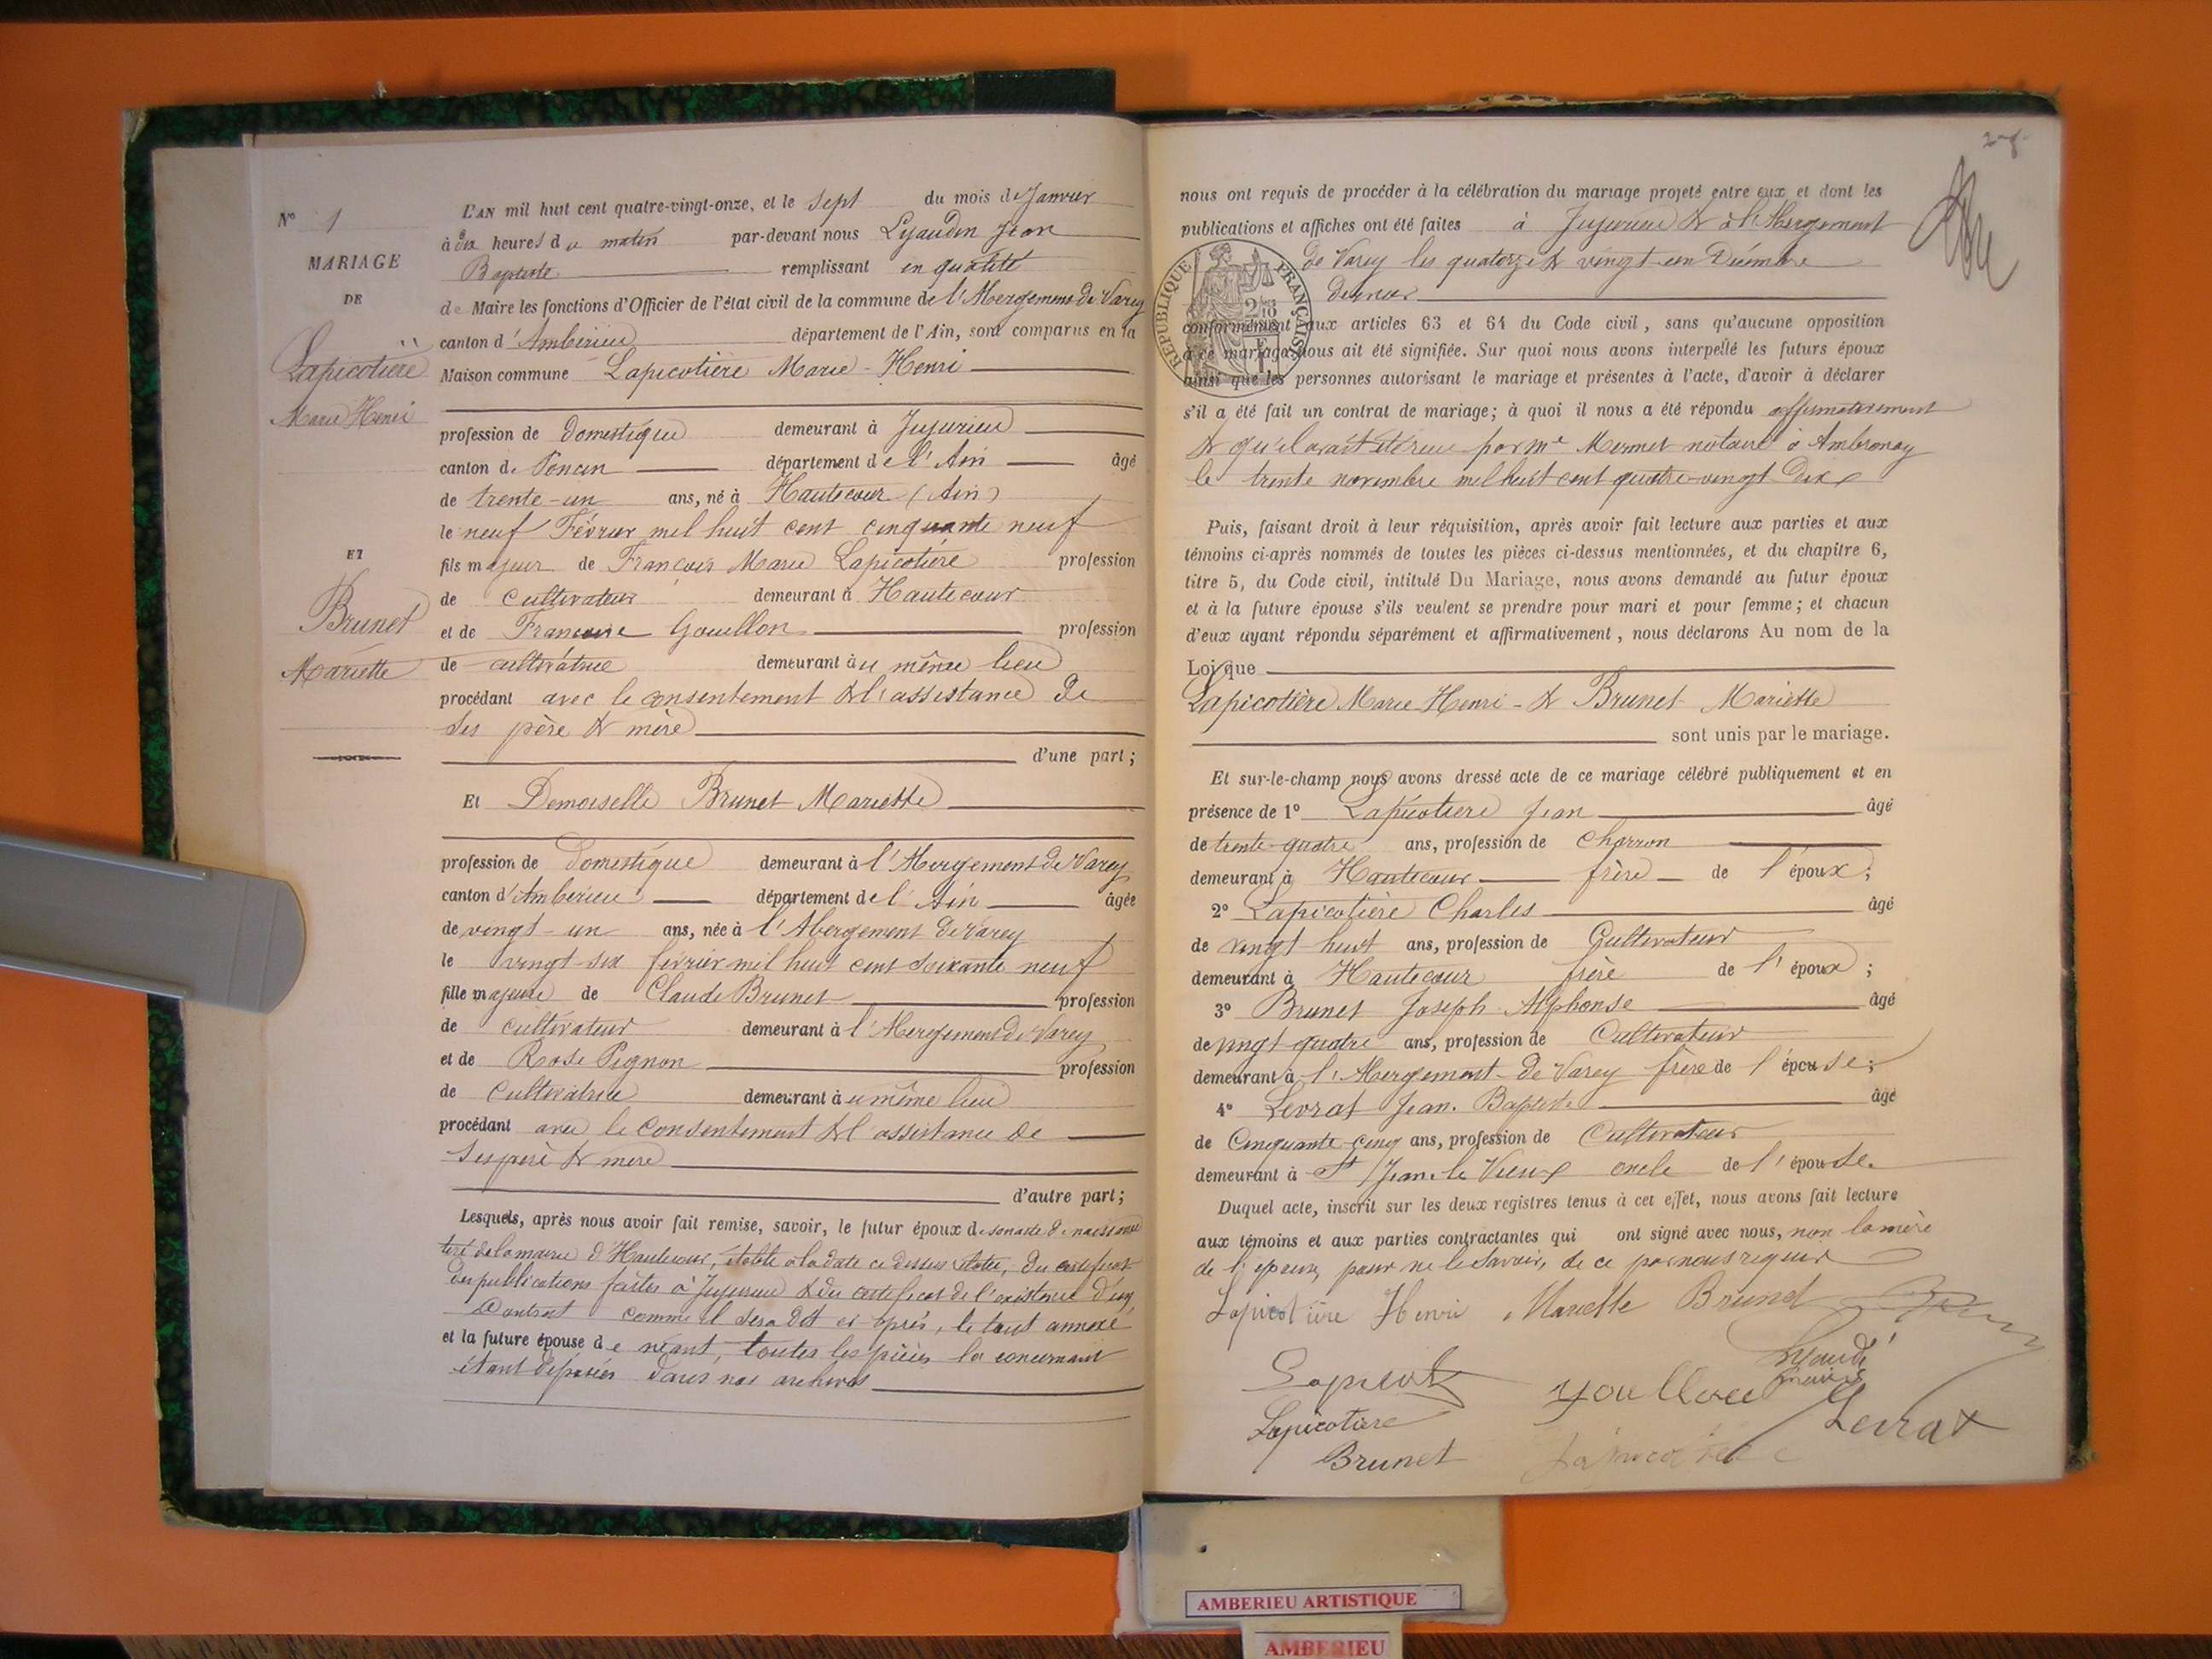 N° 1
MARIAGE
DE
Lapicotière
Marie Henri
ET
Brunet
Mariette
L'AN mil huit cent quatre-vingt-onze, et le sept du mois de Janvier
à dix heures du matin par-devant nous Lyaudin Jean
Baptiste remplissant en qualité
de Maire les fonctions d'Officier de l'état civil de la commune de l'Abergement de Varey
canton d'Ambérieu département de l'Ain, sont comparus en la
Maison commune Lapicotière Marie-Henri
profession de domestique demeurant à Jujurieu
canton de Poncin département de l'Ain âgé
de trente-un ans, né à Hautecour (Ain)
le neuf Février mil huit cent cinquante neuf
fils majeur de François Marie Lapicotière profession
de cultivateur demeurant à Hautecour
et de Françoise Gouillon profession
de cultivatrice demeurant au même lieu
procédant avec le consentement & l'assistance de
ses père & mère
d'une part;
Et Demoiselle Brunet Mariette
profession de domestique demeurant à l'Abergement de Varey
canton d'Ambérieu département de l'Ain âgée
de vingt-un ans, née à l'Abergement de Varey
le vingt-six février mil huit cent soixante neuf
fille majeure de Claude Brunet profession
de cultivateur demeurant à l'Abergement de Varey
et de Rose Pignon profession
de Cultivatrice demeurant au même lieu
procédant avec le consentement & l'assistance de
ses père & mère
d'autre part;
Lesquels, après nous avoir fait remise, savoir, le futur époux de son acte de naissance
tiré de la mairie d'Hautecour, établi à la date ci dessus relatée, du certificat
des publications faites à Jujurieu & du certificat de l'existence d'un
Contrat comme il sera dit ci-après, le tout annexé
et la future épouse de néant, toutes les pièces la concernant
étant déposées dans nos archives
nous ont requis de procéder à la célébration du mariage projeté entre eux et dont les
publications et affiches ont été faites à Jujurieu & à l'Abergement
de Varey les quatorze & vingt-un Décembre
dernier
RÉPUBLIQUE FRANÇAISE
conformément aux articles 63 et 64 du Code civil, sans qu'aucune opposition
à ce mariage nous ait été signifiée. Sur quoi nous avons interpellé les futurs époux
ainsi que les personnes autorisant le mariage et présentes à l'acte, d'avoir à déclarer
s'il a été fait un contrat de mariage; à quoi il nous a été répondu affirmativement
& qu'il avait été reçu par Me Monnet notaire à Ambronay
le trente novembre mil huit cent quatre-vingt dix
Puis, faisant droit à leur réquisition, après avoir fait lecture aux parties et aux
témoins ci-après nommés de toutes les pièces ci-dessus mentionnées, et du chapitre 6,
titre 5, du Code civil, intitulé Du Mariage, nous avons demandé au futur époux
et à la future épouse s'ils veulent se prendre pour mari et pour femme; et chacun
d'eux ayant répondu séparément et affirmativement, nous déclarons Au nom de la
Loi que
Lapicotière Marie Henri - & Brunet Mariette
sont unis par le mariage.
Et sur-le-champ nous avons dressé acte de ce mariage célébré publiquement et en
présence de 1° Lapicotière Jean âgé
de trente-quatre ans, profession de Charron
demeurant à Hautecour frère de l'époux;
2° Lapicotière Charles âgé
de vingt huit ans, profession de Cultivateur
demeurant à Hautecour frère de l'époux;
3° Brunet Joseph Alphonse âgé
de vingt-quatre ans, profession de Cultivateur
demeurant à l'Abergement-de Varey frère de l'épouse;
4° Levrat Jean-Baptiste âgé
de Cinquante-cinq ans, profession de Cultivateur
demeurant à St Jean-le Vieux oncle de l'épouse.
Duquel acte, inscrit sur les deux registres tenus à cet effet, nous avons fait lecture
aux témoins et aux parties contractantes qui ont signé avec nous, non la mère
de l'époux, pour ne le savoir, de ce par nous requis
Lapicotière Henri Mariette Brunet
Lyaudin
maire
Lapicot
Lapicotière
Levrat
Brunet
AMBERIEU ARTISTIQUE
AMBERIEU